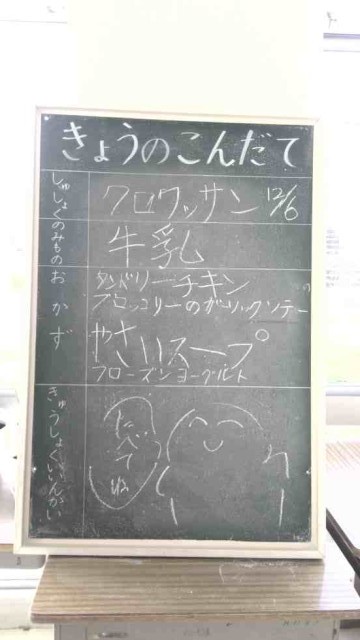 きょうのこんだて
しゅしょく クロワッサン 12/6
のみもの 牛乳
おかず タンドリーチキン
ブロッコリーのガーリックソテー
やさいスープ
フローズンヨーグルト
きゅうしょくいいんかい
たべてね